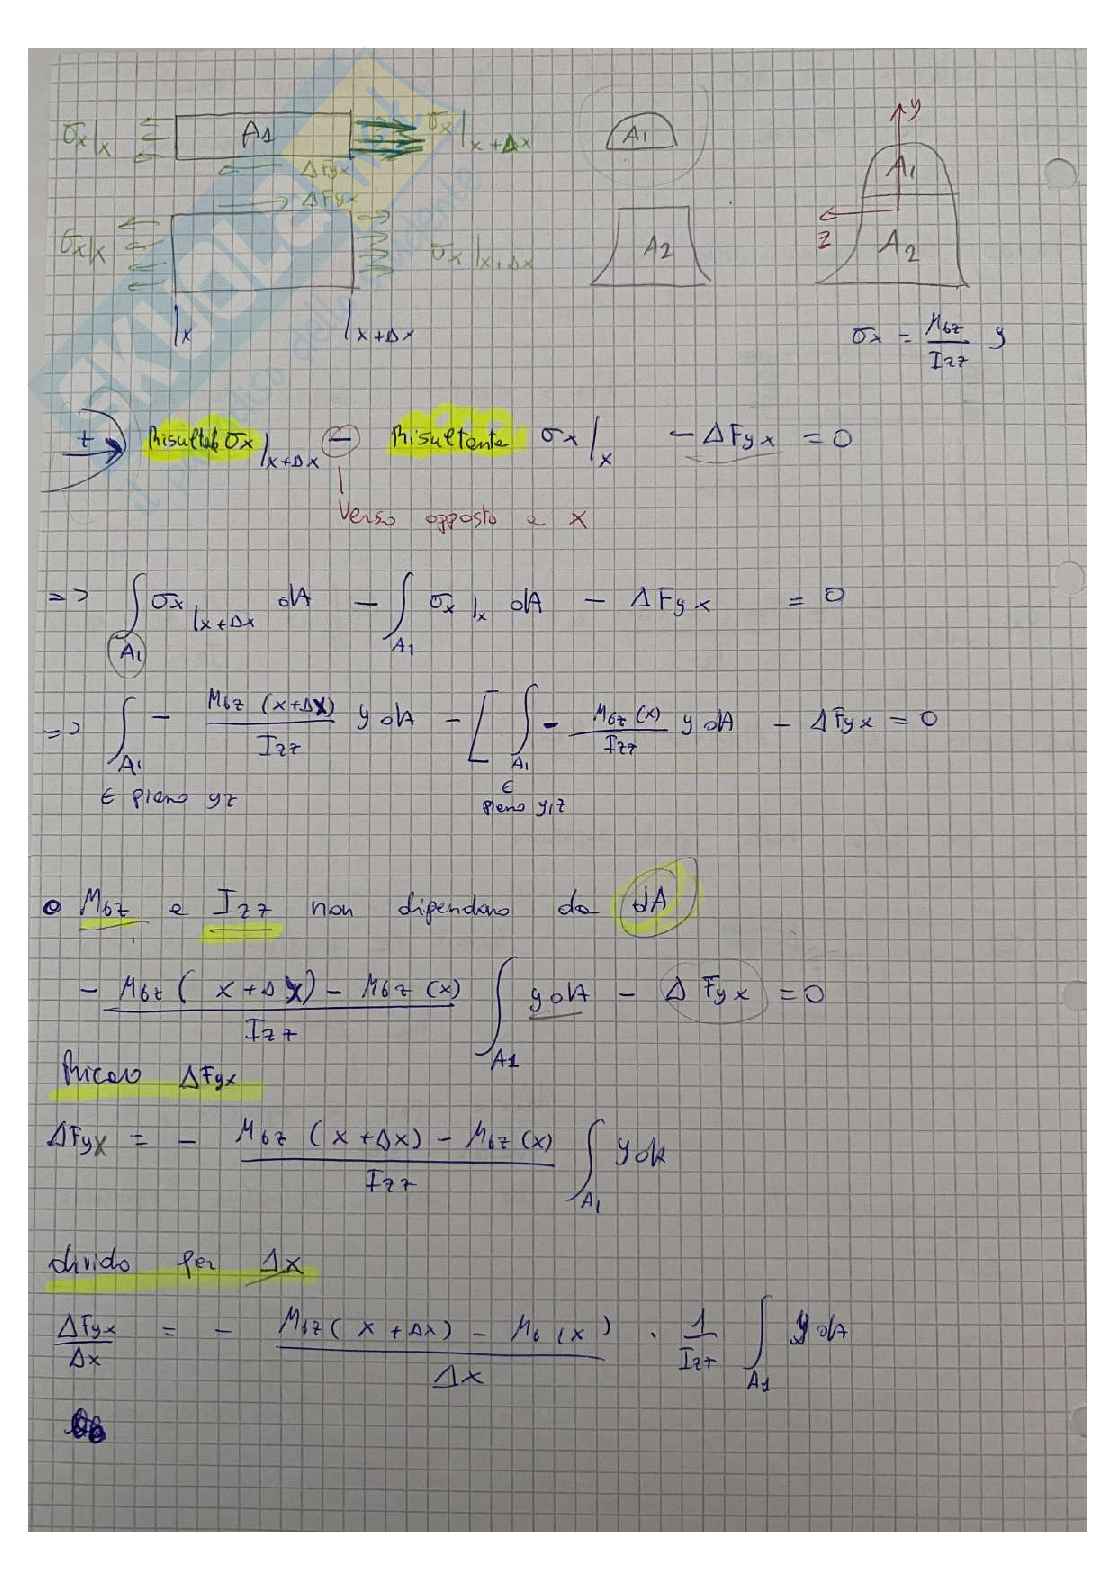 σx|x A1 σx|x+Δx A1 y
ΔFyx A1
ΔFyx
σx|x σx|x+Δx A2 z A2
|x |x+Δx
σx = Mbz/Izz y
SKUOLA
t Risultate σx|x+Δx − Risultante σx|x − ΔFyx = 0
Verso opposto a x
=> ∫A1 σx|x+Δx dA − ∫A1 σx|x dA − ΔFyx = 0
=> ∫A1 − Mbz (x+Δx)/Izz y dA − [ ∫A1 − Mbz (x)/Izz y dA − ΔFyx = 0
∈ piano yz ∈ piano y,z
o Mbz e Izz non dipendono da dA
− Mbz ( x+Δx) − Mbz (x)/Izz ∫A1 y dA − ΔFyx = 0
Ricavo ΔFyx
ΔFyx = − Mbz (x+Δx) − Mbz (x)/Izz ∫A1 y dA
divido per Δx
ΔFyx/Δx = − Mbz( x+Δx) − Mb (x)/Δx · 1/Izz ∫A1 y dA